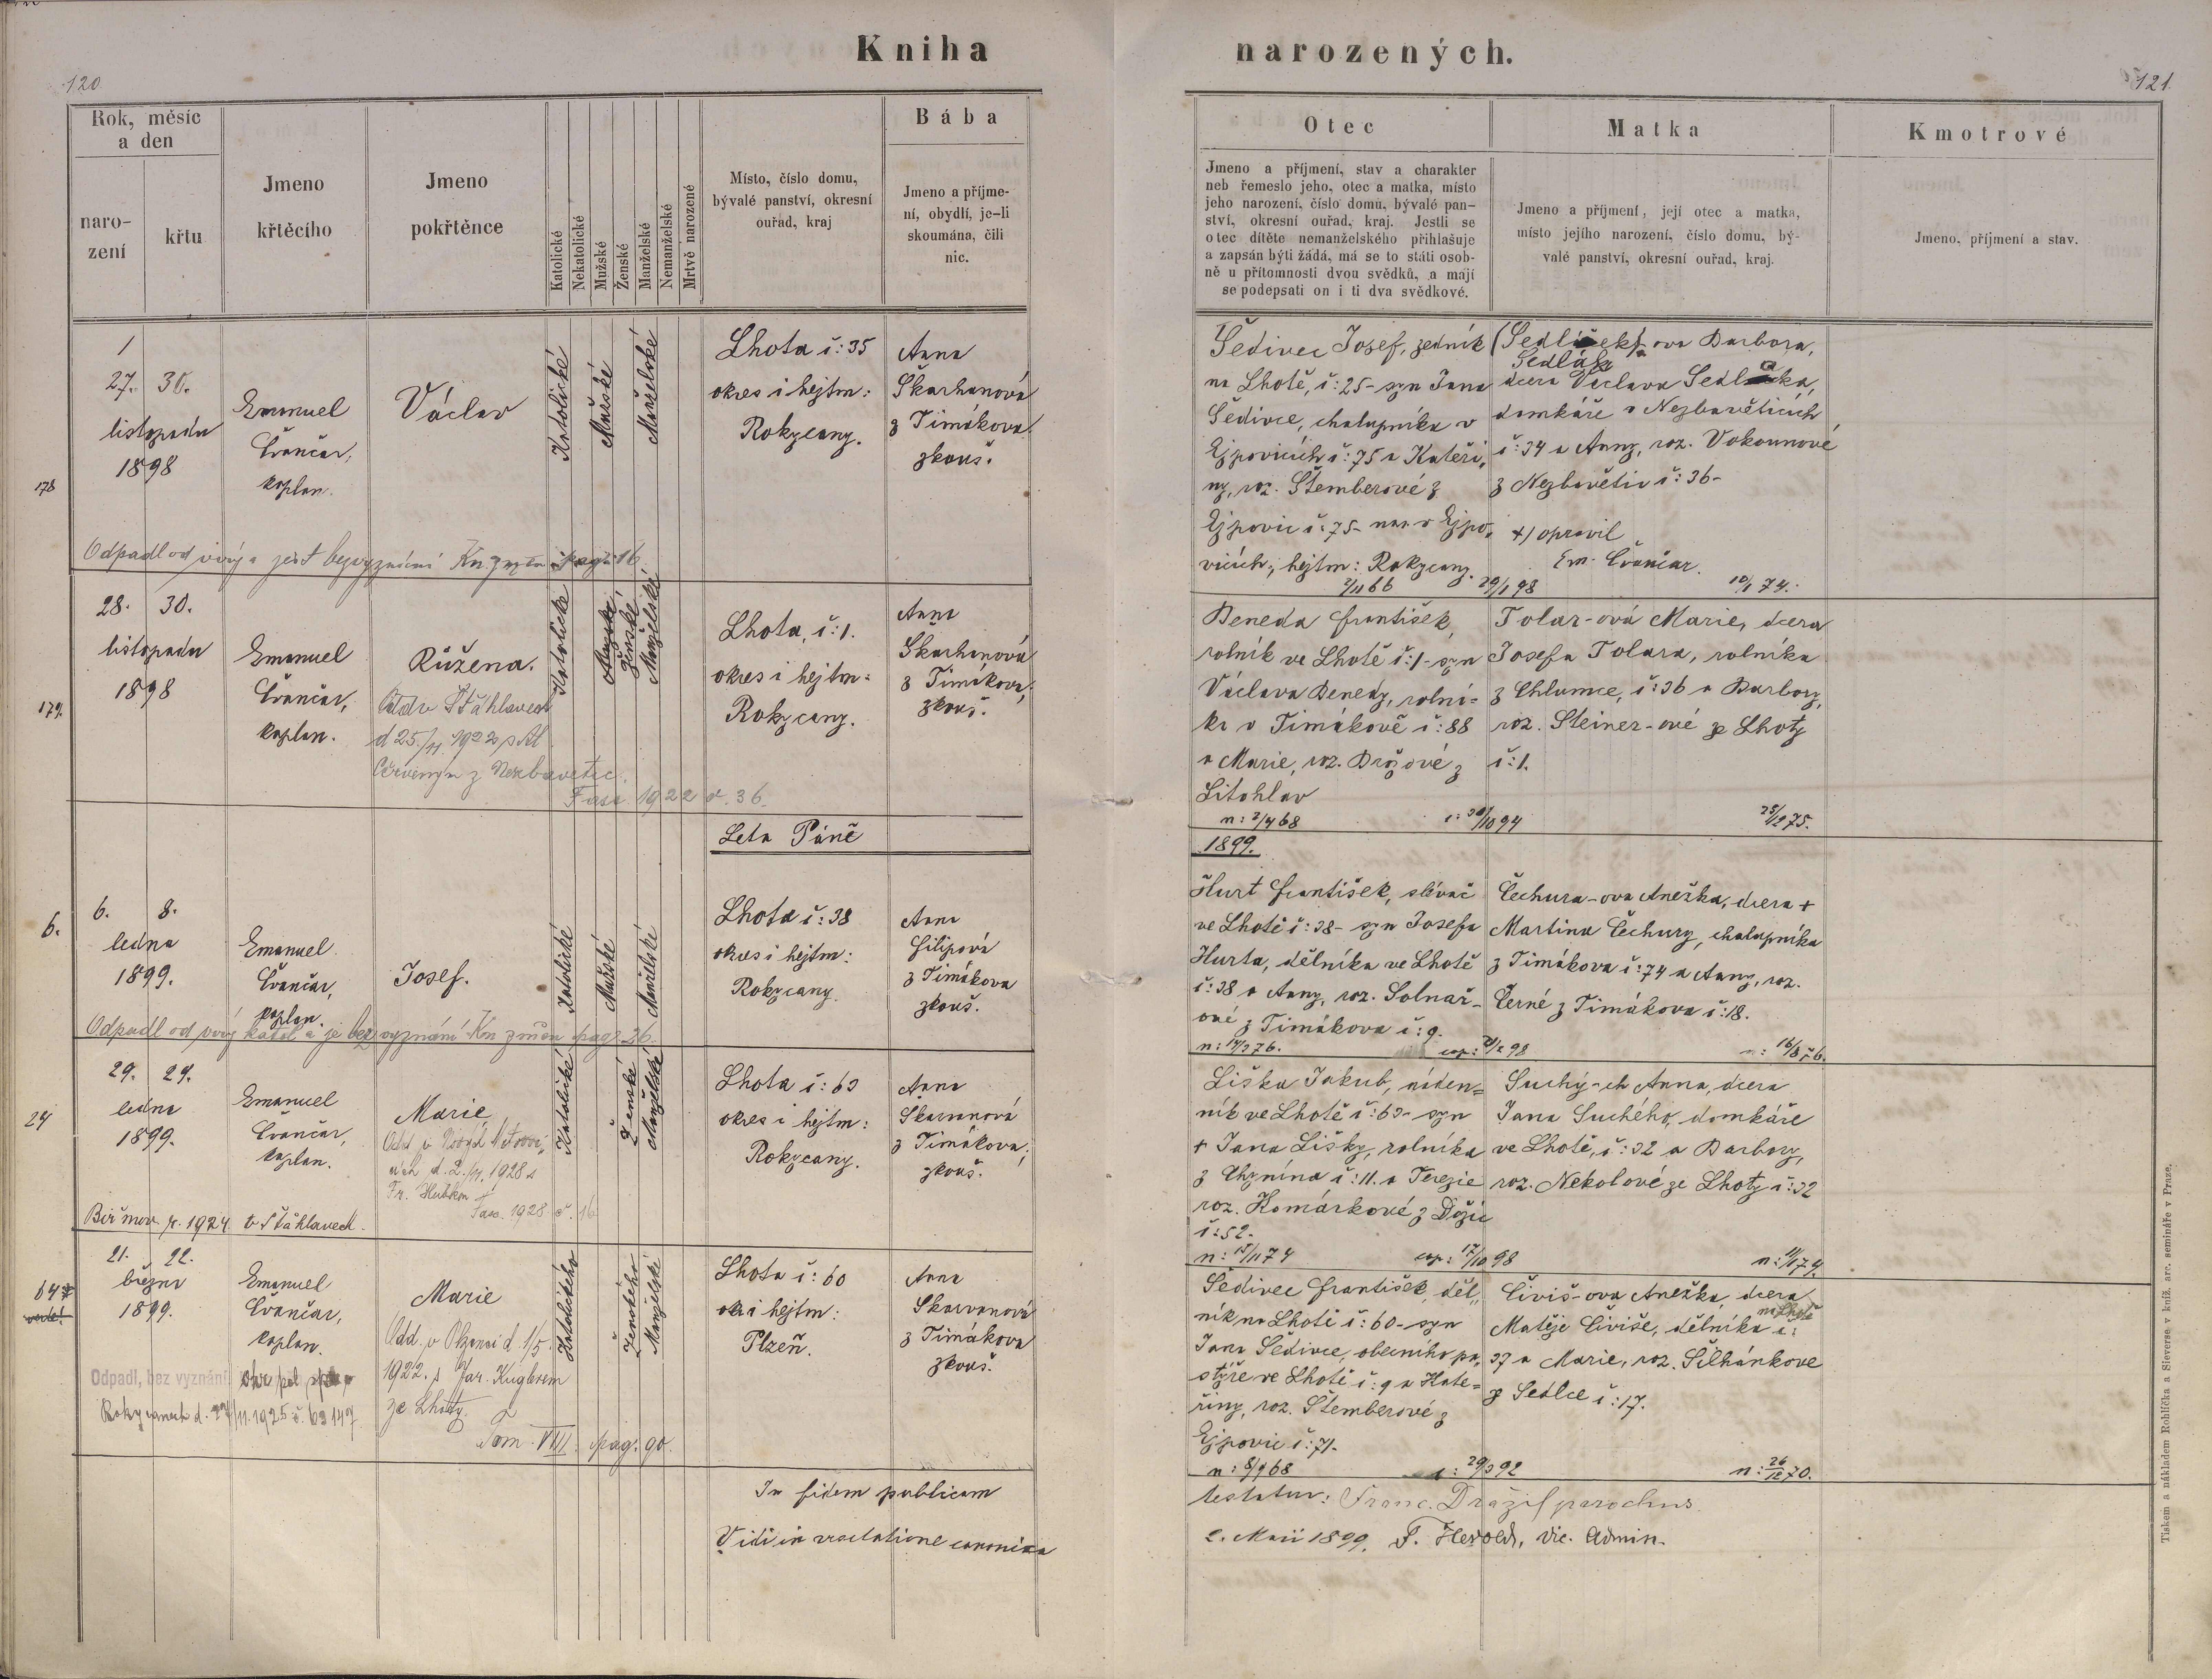 Kniha
narozených.
120
121
Rok, měsíc
a den
naro-
zení
křtu
Jmeno
křtěcího
Jmeno
pokřtěnce
Katolické
Nekatolické
Mužské
Ženské
Manželské
Nemanželské
Mrtvě narozené
Místo, číslo domu,
bývalé panství, okresní
ouřad, kraj
Bába
Jmeno a příjme-
ní, obydlí, je-li
skoumána, čili
nic.
Otec
Jmeno a příjmení, stav a charakter
neb řemeslo jeho, otec a matka, místo
jeho narození, číslo domu, bývalé pan-
ství, okresní ouřad, kraj. Jestli se
otec dítěte nemanželského přihlašuje
a zapsán býti žádá, má se to státi osob-
ně u přítomnosti dvou svědků, a mají
se podepsati on i ti dva svědkové.
Matka
Jmeno a příjmení, její otec a matka,
místo jejího narození, číslo domu, bý-
valé panství, okresní ouřad, kraj.
Kmotrové
Jmeno, příjmení a stav.
178
27. 30.
listopadu
1898
Emanuel
Čvančar,
kaplan.
Václav
Katolické
Mužské
Manželské
Lhota č: 35
okres i hejtm:
Rokycany.
Anna
Škarhanová
z Timákova
zkouš.
Odpadl od víry a jest bezvyznání
pag. 16
Šedivec Josef, zedník
na Lhotě, č: 25- syn Jana
Šedivce, chalupníka v
Ejpovicích č: 75 a Kateři-
ny, roz. Štemberové z
Ejpovic č: 75- nar. v Ejpo-
vicích, hejtm: Rokycany.
2/11 66
29/1 98
(Sedlíček)-ova Barbora,
Sedlák
dcera Václava Sedláka,
domkáře v Nezbavěticích
č: 34 a Anny, roz. Vokounové
z Nezbavětic č: 36-
+) opravil
Em. Čvančar.
10/1 74.
179.
28. 30.
listopadu
1898
Emanuel
Čvančar,
kaplan.
Růžena.
Odd v Šťáhlavech
d 25./11. 1922 s Al.
Červeným z Nezbavetic.
Fasc 1922 č. 36.
Katolické
Mužské
Ženské
Manželské
Lhota, č: 1.
okres i hejtm:
Rokycany.
Anna
Škarhanová
z Timákova,
zkouš.
Beneda František,
rolník ve Lhotě č: 1- syn
Václava Benedy, rolní-
ka v Timákově č: 88
a Marie, roz. Brožové z
Litohlav
n: 2/4 68
c: 30/10 94
Tolar-ová Marie, dcera
Josefa Tolara, rolníka
z Chlumce, č: 36 a Barbory,
roz. Steiner-ové ze Lhoty
č: 1.
25/12 75.
Leta Páně
1899.
6.
6. 8.
ledna
1899.
Emanuel
Čvančar,
kaplan.
Josef.
Katolické
Mužské
Manželské
Lhota č: 38
okres i hejtm:
Rokycany.
Anna
Filipová
z Timákova
zkouš.
Odpadl od víry katol a je bez vyznání Kn změn pag. 26.
Hurt František, slévač
ve Lhotě č: 38- syn Josefa
Hurta, dělníka ve Lhotě
č: 38 a Anny, roz. Solnař-
ové z Timákova č: 9.
n: 14/3 76.
Čechura-ova Anežka, dcera +
Martina Čechury, chalupníka
z Timákova č: 74 a Anny, roz.
Černé z Timákova č: 18.
16/8 76.
24
29. 29.
ledna
1899.
Emanuel
Čvančar,
kaplan.
Marie
d. 2./4. 1928 s
Fasc. 1928 č. 16
Katolické
Ženské
Manželské
Lhota č: 63
okres i hejtm:
Rokycany.
Anna
Skarvanová
z Timákova,
zkouš.
Biřmov. r. 1924 v Šťáhlavech.
Liška Jakub, náden-
ník ve Lhotě č: 63- syn
+ Jana Lišky, rolníka
z Chynína č: 11. a Terezie
roz. Komárkové z Dožic
č: 52.
n: 15/11 74
cop: 17/10 98
Suchý-ch Anna, dcera
Jana Suchého, domkáře
ve Lhotě, č: 32 a Barbory,
roz. Nekolové ze Lhoty č: 32
n: 11/1 79.
64
21. 22.
března
1899.
Emanuel
Čvančar,
kaplan.
Marie
Odd. v Plzni d. 1/5.
1922. s Jar. Kuglerem
ze Lhoty.
Tom VIII. pag. 90.
Katolického
Ženského
Manželské
Lhota č: 60
okr. i hejtm:
Plzeň.
Anna
Skarvanová
z Timákova
zkouš.
Odpadl, bez vyznání
Rokycanech d. 27/11. 1925 č. 63147
Šedivec František, děl-
ník na Lhotě č: 60- syn
Jana Šedivce, obecního pa-
stýře ve Lhotě č: 9 a Kate-
řiny, roz. Štemberové z
Ejpovic č: 71.
n: 8/9 68
c: 29/3 92
Čiviš-ova Anežka, dcera
Matěje Čiviše, dělníka na Lhotě č:
37 a Marie, roz. Šilhánkove
z Sedlce č: 17.
n: 26/12 70.
In fidem publicam
testatur: Franc. Dražil parochus.
Vidi in visitatione canonica
2. Maii 1899. F. Herold, vic. Admin.
Tiskem a nákladem Rohlíčka a Sieverse v kníž. arc. semináře v Praze.